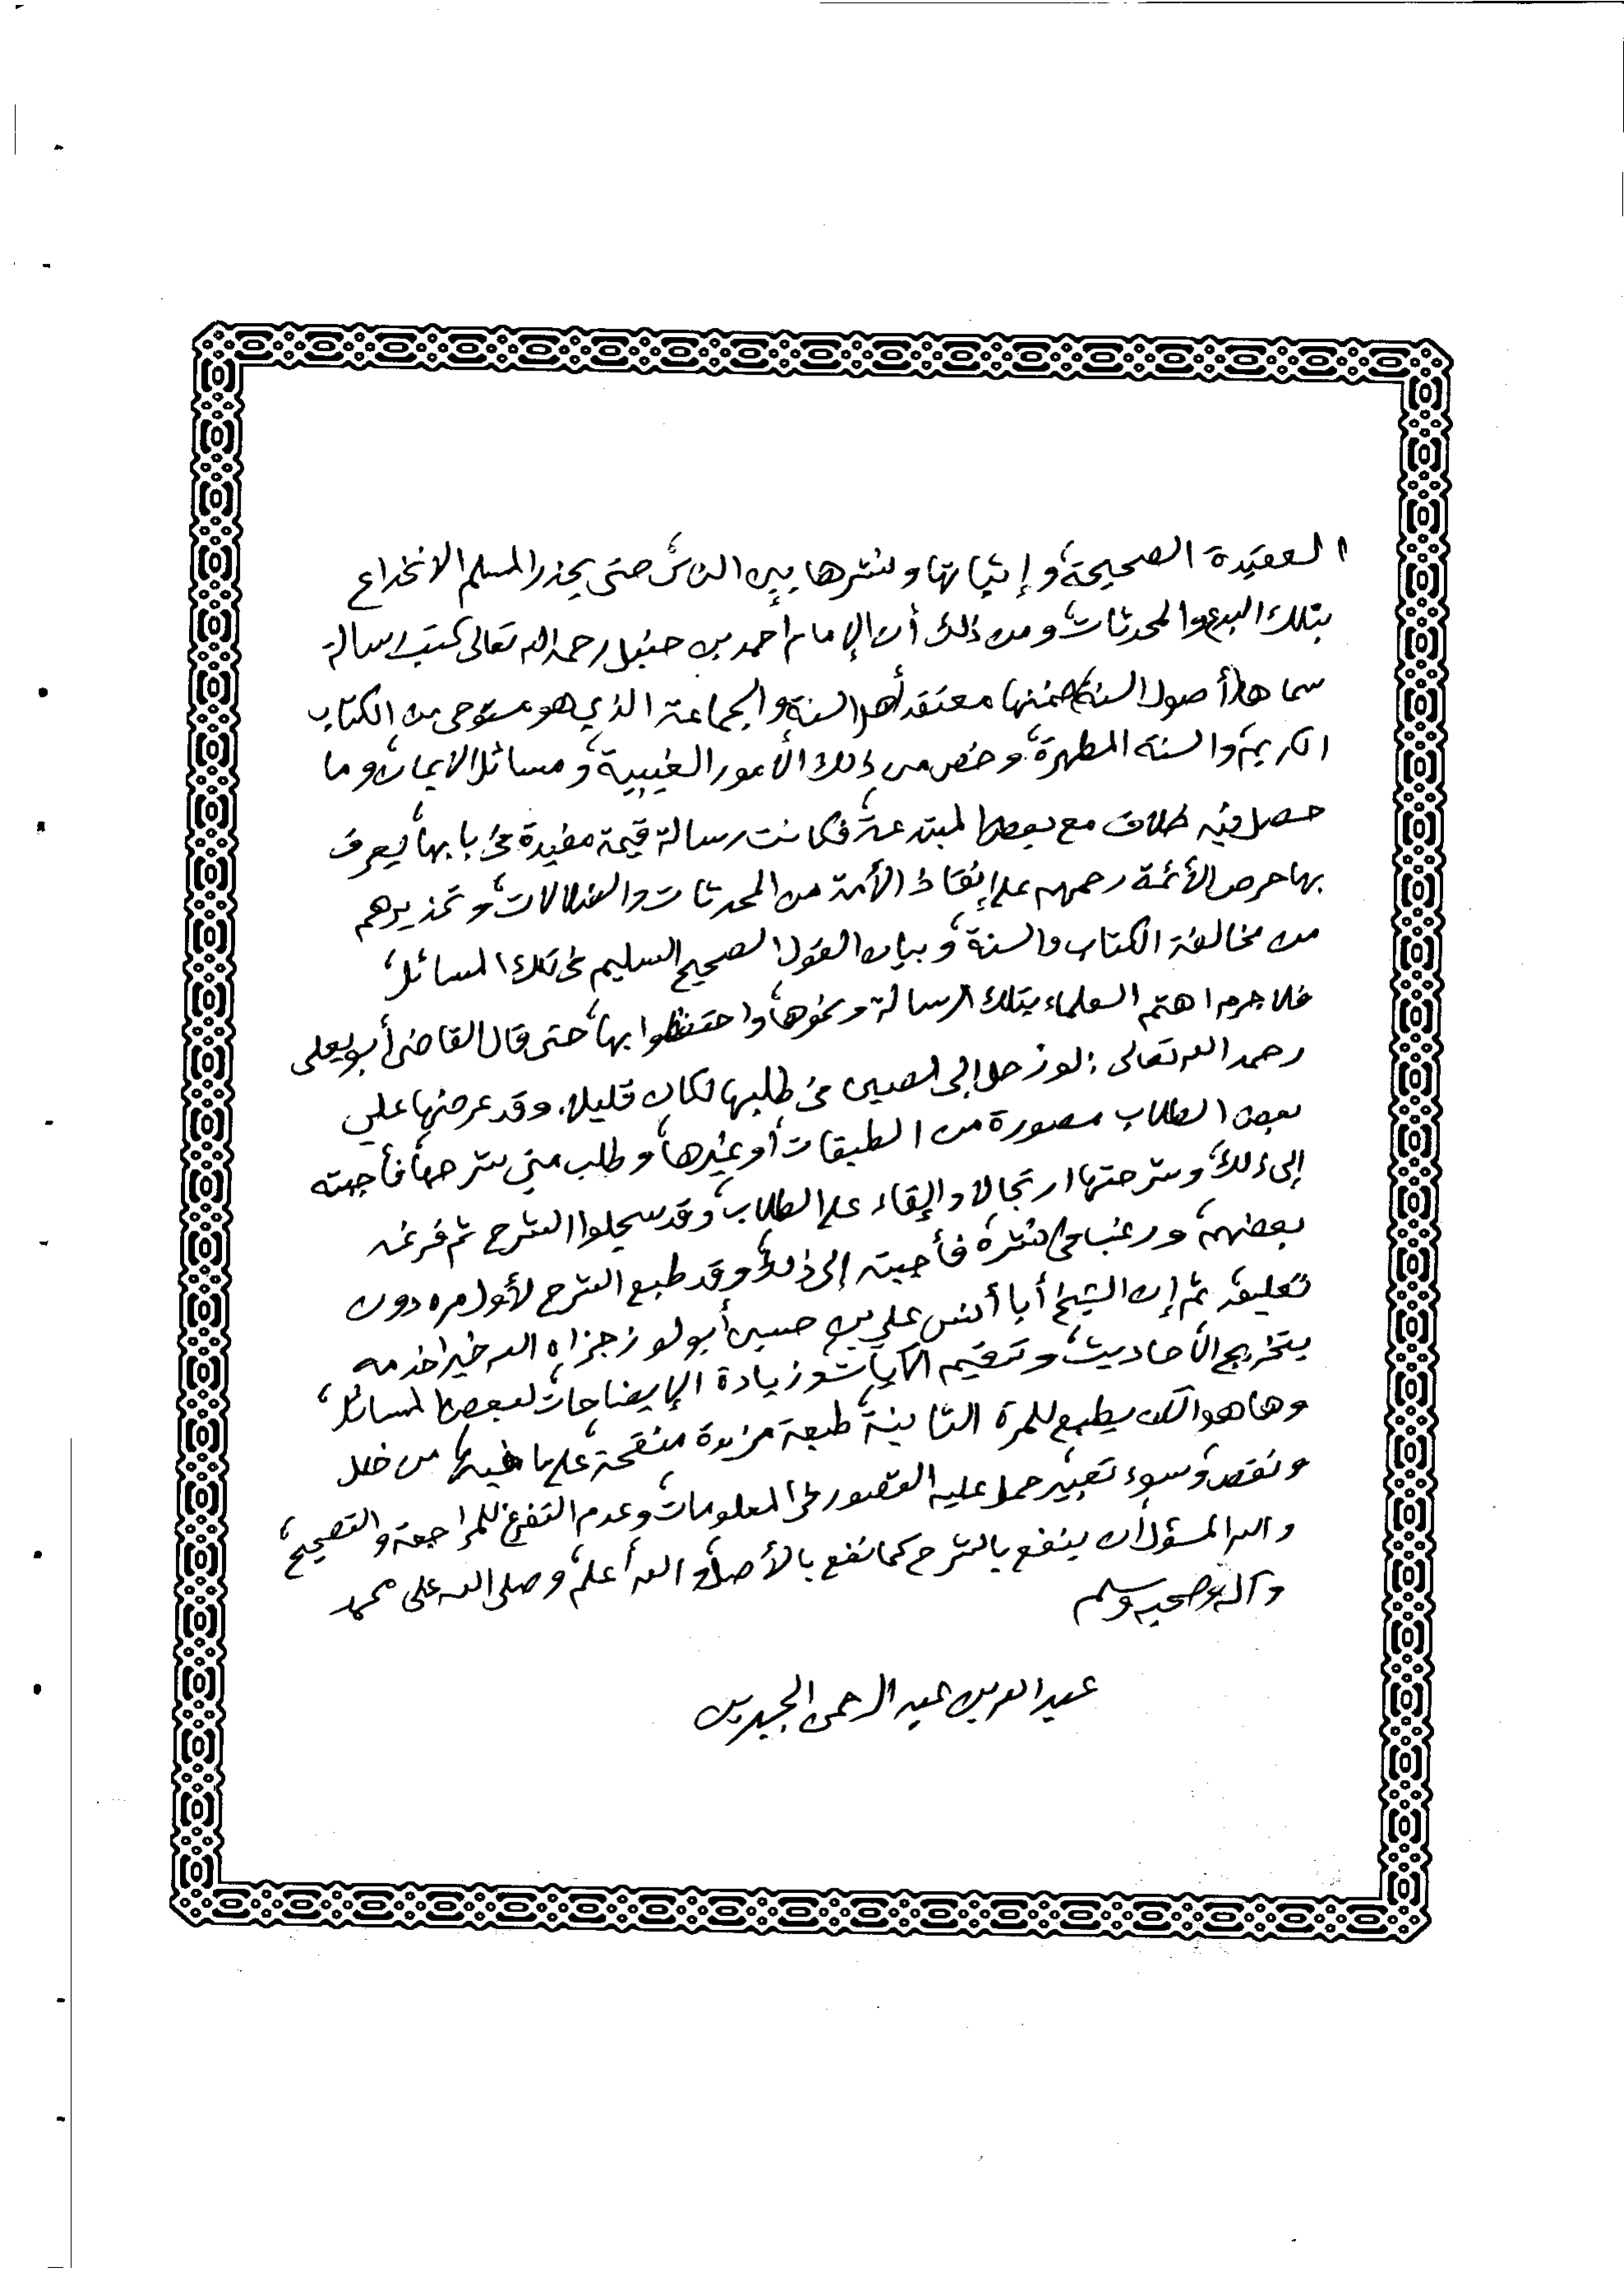 العقيدة الصحيحة، وإثباتها ونشرها بين الناس، حتى يحذر المسلم الانخداع
بتلك البدع والمحدثات، ومن ذلك أن الإمام أحمد بن حنبل رحمه الله تعالى كتب رسالة
سماها أصول السنة ضمنها معتقد أهل السنة والجماعة الذي هو مستوحى من الكتاب
الكريم، والسنة المطهرة، وخص من ذلك الأمور الغيبية، ومسائل الإيمان، وما
حصل فيه خلاف مع بعض المبتدعة، فكانت رسالة قيمة مفيدة في بابها، يعرف
بها حرص الأئمة رحمهم على إنقاذ الأمة من المحدثات والضلالات، وتحذيرهم
من مخالفة الكتاب والسنة، وبيان القول الصحيح السليم في تلك المسائل،
فلا جرم اهتم العلماء بتلك الرسالة ونحوها، واحتفظوا بها، حتى قال القاضي أبو يعلى
رحمه الله تعالى: لو رحل إلى الصين في طلبها لكان قليلا. وقد عرضها علي
بعض الطلاب مصورة من الطبقات، أو غيرها، وطلب مني شرحها، فأجبته
إلى ذلك، وشرحتها ارتجالا وإلقاء على الطلاب، وقد سجلوا الشرح ثم فرغه
بعضهم، ورغب في نشره، فأجبته إلى ذلك، وقد طبع الشرح لأول مره دون
تعليق، ثم إن الشيخ أبا أنس علي بن حسين أبو لوز جزاه الله خيرا خدمه
بتخريج الأحاديث، وترقيم الآيات، وزيادة الإيضاحات، لبعض المسائل،
وها هو الآن يطبع للمرة الثانية، طبعة مزيدة منقحة، على ما فيها من خلل
ونقص، وسوء تعبير، حمل عليه القصور في المعلومات، وعدم التفرغ للمراجعة والتصحيح،
والله المسؤل أن ينفع بالشرح كما نفع بالأصل، والله أعلم، وصلى الله على محمد
وآله وصحبه وسلم
عبد الله بن عبد الرحمن الجبرين